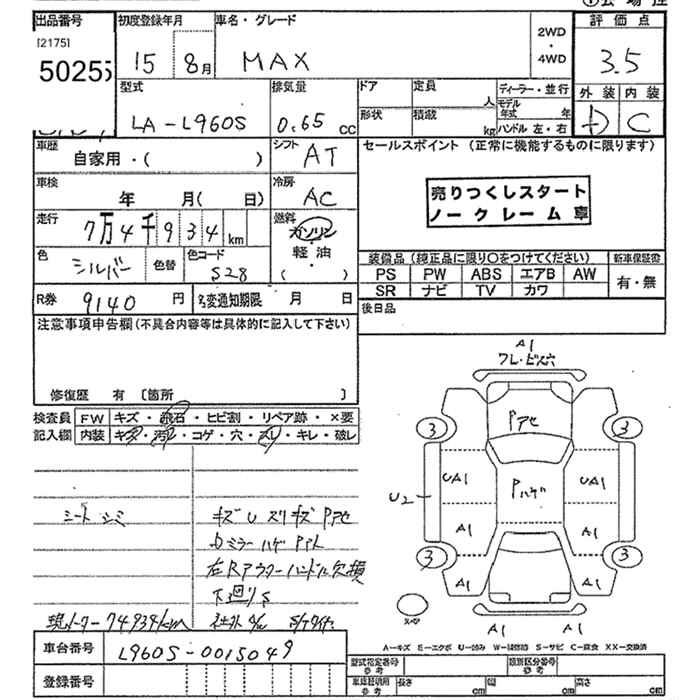 出品番号 初度登録年月 車名・グレード 評価点
[2175]
50255 15 8月 MAX 2WD・4WD 3.5
型式 排気量 ドア 定員 人 ディーラー・並行 外装 内装
LA-L960S 0.65 CC 形状 積載 kg モデル年式 年 ハンドル 左・右 D C
車歴 自家用・( ) シフト AT セールスポイント (正常に機能するものに限ります)
車検 年 月( 日) 冷房 AC 売りつくしスタート
走行 7万4千934km 燃料 ガソリン ノークレーム車
色 シルバー 色替 色コード S28 軽油 ( ・ )
装備品 (純正品に限り○をつけてください) 新車保証書
PS PW ABS エアB AW 有・無
SR ナビ TV カワ
R券 9140 円 名変通知期限 月 日 後日品
注意事項申告欄 (不具合内容等は具体的に記入して下さい)
修復歴 有 〔箇所 〕
検査員 FW キズ・飛石・ヒビ割・リペア跡・×要
記入欄 内装 キズ・汚レ・コゲ・穴・スレ・キレ・破レ
シート シミ
キズ U スリキズ Pアセ
カミラー ハゲ
右Rアウターハンドル欠損
下廻り S
現メーター 74934km
車台番号 L960S-0015049
登録番号
A1
ワレ・ビス穴
Pアセ
3 3
UA1 Pハゲ UA1
U2
A1 A1
3 3
A1 A1
A1 A1
A-キズ E-エクボ U-凹み W-補修跡 S-サビ C-腐食 XX-交換済
型式指定番号 参考 類別区分番号 参考
車庫証明用 参考 長さ cm 幅 cm 高さ cm